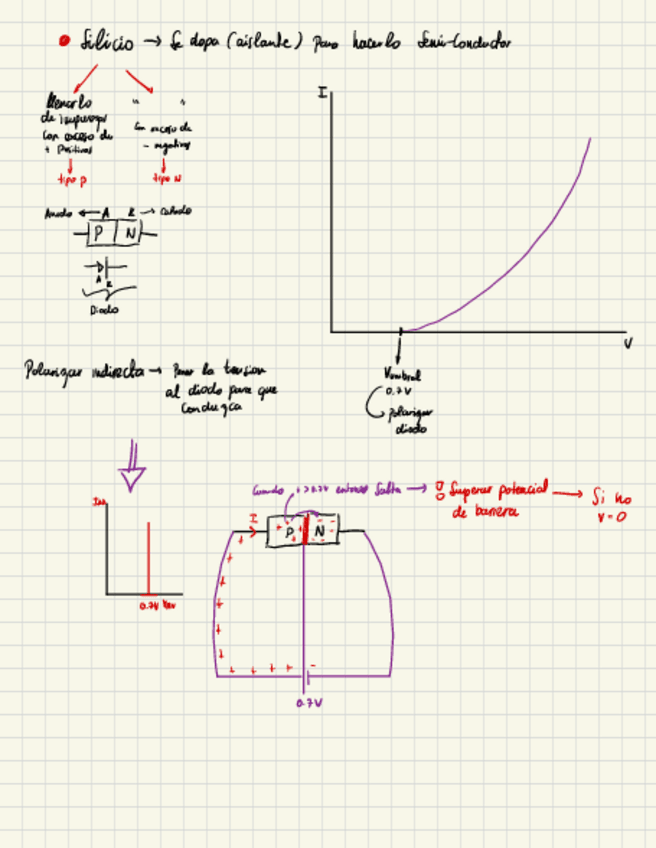 Silicio → Se dopa (aislante) para hacerlo Semi-Conductor
Llenarlo
de impurezas
con exceso de
+ Positivas
" "
Con exceso de
- negativas
tipo P
tipo N
Anodo ← A K → Catodo
P N
A K
Diodo
I
V
Vumbral
0.7V
polarizar
diodo
Polarizar indirecta → Poner la tension
al diodo para que
Conduzca
0.7V
Cuando entonces Salta → Superar potencial → Si no
de barrera V=0
I
P N
0.7V